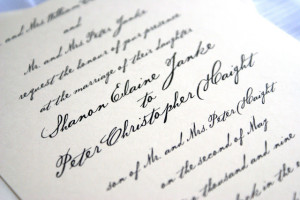 and Mrs William
and
Mr and Mrs Peter Janke
request the honour of your presence
at the marriage of their daughter
Shanon Elaine Janke
to
Peter Christopher Haight
son of Mr. and Mrs. Peter Haight
on the second of May
thousand and nine
in the